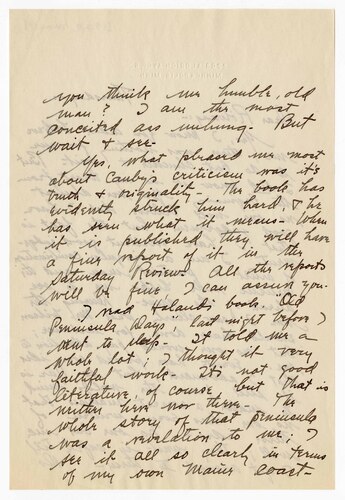 you think me humble, old
man? I am the most
conceited ass unhung. But
wait & see.
Yes, what pleased me most
about Canby's criticism was it's
truth & originality. The book has
evidently struck him hard, & he
has seen what it means. When
it is published they will have
a fine report of it in the
Saturday Review. All the reports
will be fine I can assure you.
I read Holand's book "Old
Peninsula Days", last night before I
went to sleep. It told me a
whole lot; I thought it very
faithful work. It's not good
literature, of course, but that is
neither here nor there. The
whole story of that peninsula
was a revelation to me; I
see it all so clearly in terms
of my own Maine coast.